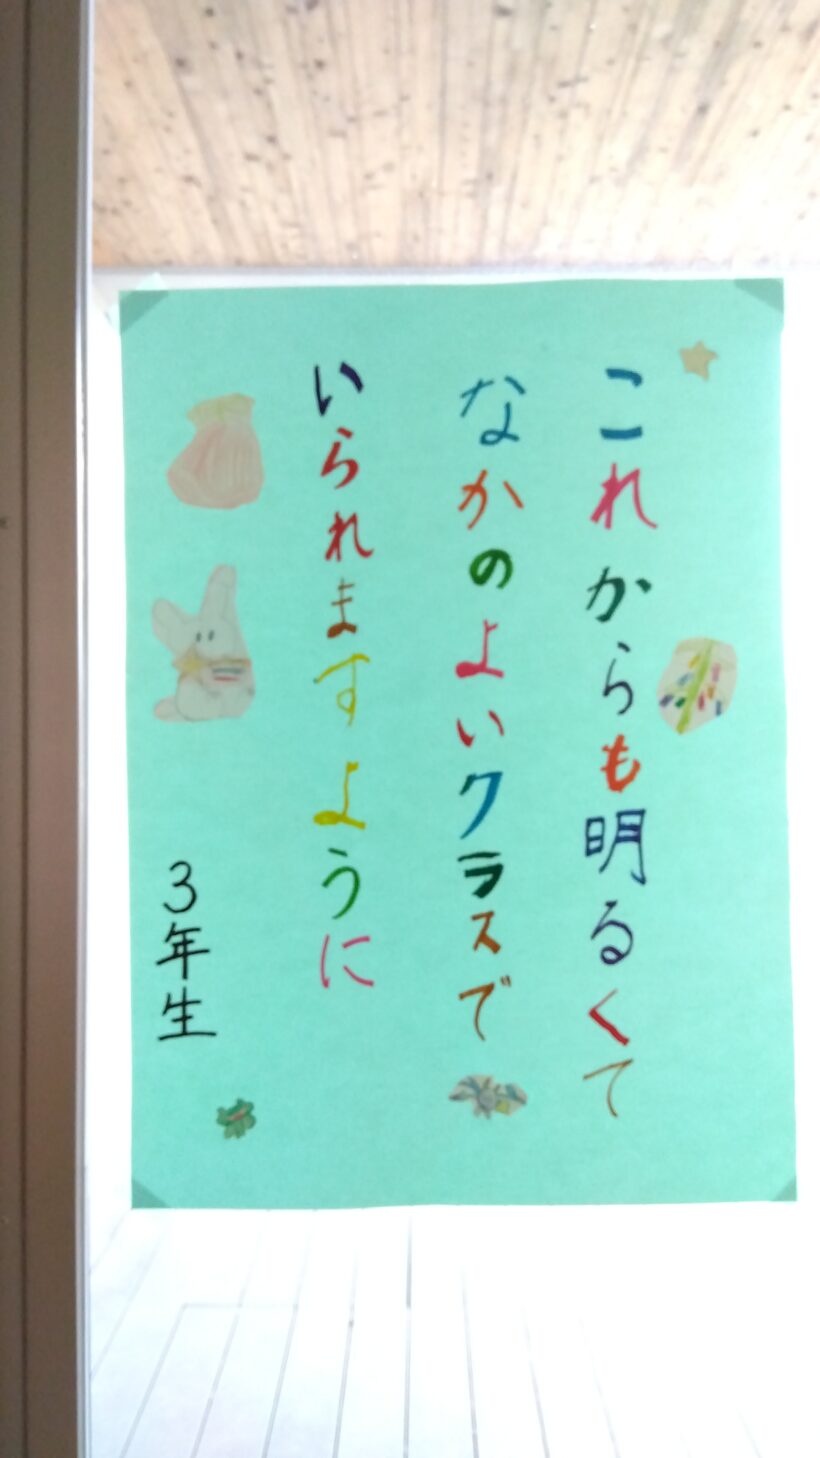 これからも明るくて
なかのよいクラスで
いられますように
3年生